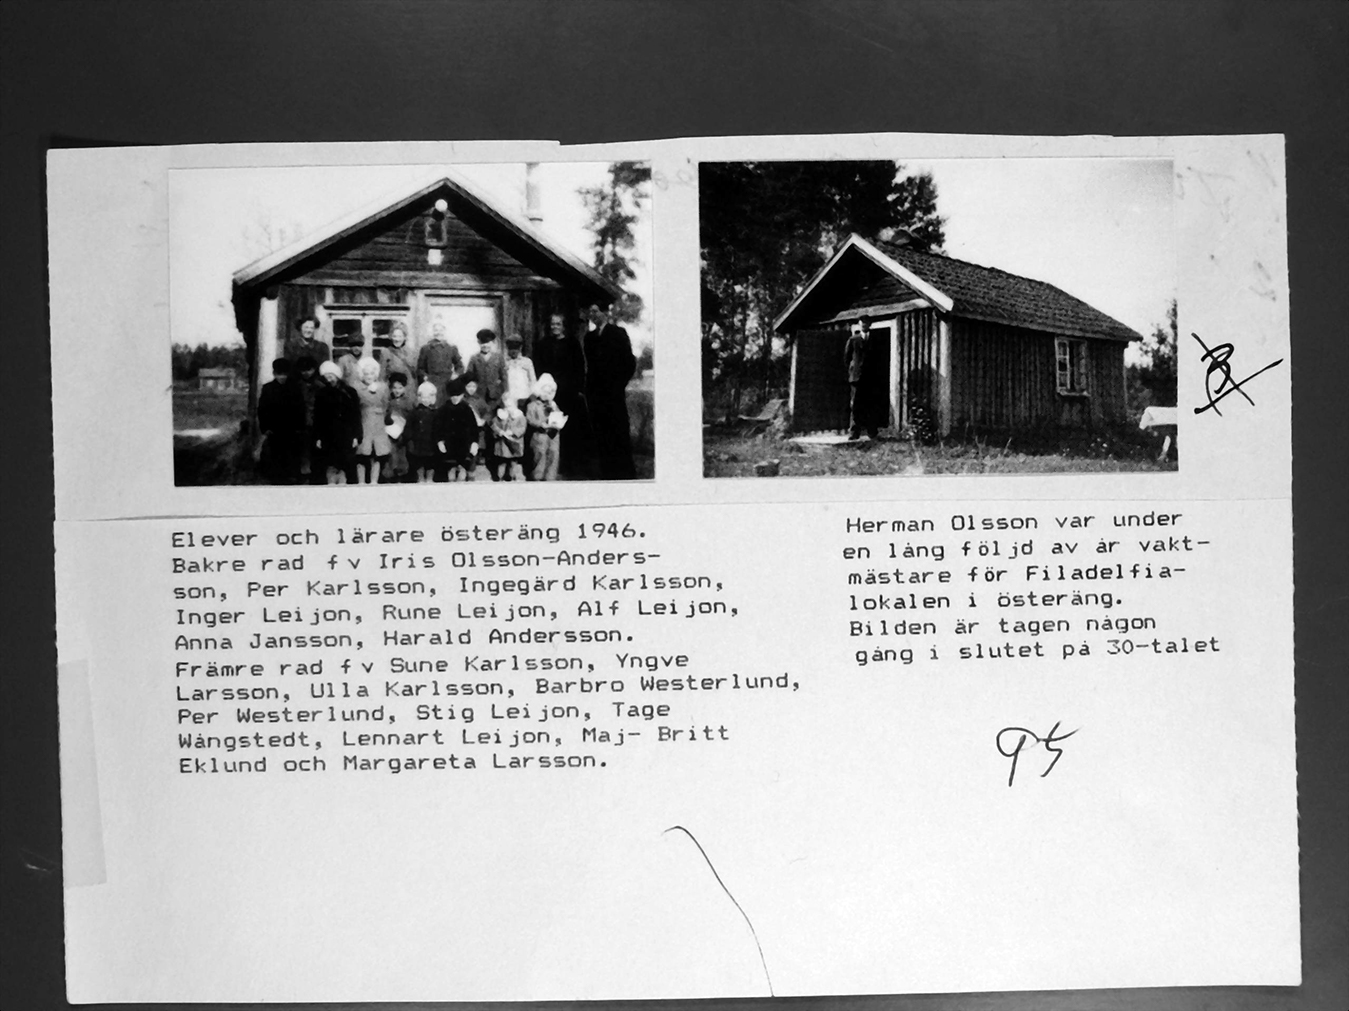 Elever och lärare österäng 1946.
Bakre rad f v Iris Olsson-Anders-
son, Per Karlsson, Ingegärd Karlsson,
Inger Leijon, Rune Leijon, Alf Leijon,
Anna Jansson, Harald Andersson.
Främre rad f v Sune Karlsson, Yngve
Larsson, Ulla Karlsson, Barbro Westerlund,
Per Westerlund, Stig Leijon, Tage
Wångstedt, Lennart Leijon, Maj- Britt
Eklund och Margareta Larsson.
Herman Olsson var under
en lång följd av år vakt-
mästare för Filadelfia-
lokalen i österäng.
Bilden är tagen någon
gång i slutet på 30-talet
95